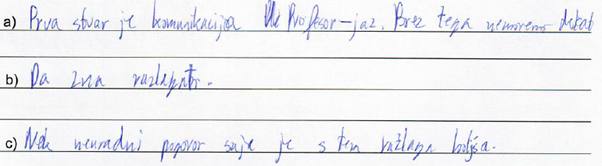 a) Prva stvar je komunikacija Profesor-jaz. Brez tega nemoremo delat
b) Da zna razlagati.
c) Nek neuradni pogovor saj je s tem razlaga boljša.